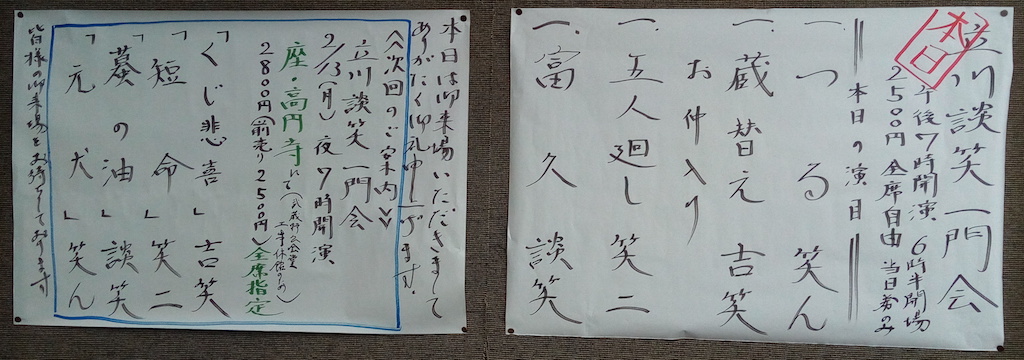 本日
立川談笑一門会
午後7時開演 6時半開場
2500円 全席自由 当日券のみ
本日の演目
一、つる 笑ん
一、蔵替え 吉笑
お仲入り
一、五人廻し 笑二
一、富久 談笑
本日は御来場いただきまして
ありがたく御礼申し上げます。
<<次回のご案内>>
立川談笑一門会
2/13(月) 夜7時開演
座・高円寺にて(武蔵野公会堂
工事休館のため)
2800円(前売り2500円)全席指定
「くじ悲喜」吉笑
「短命」笑二
「蟇の油」談笑
「元犬」笑ん
皆様の御来場をお待ちしております